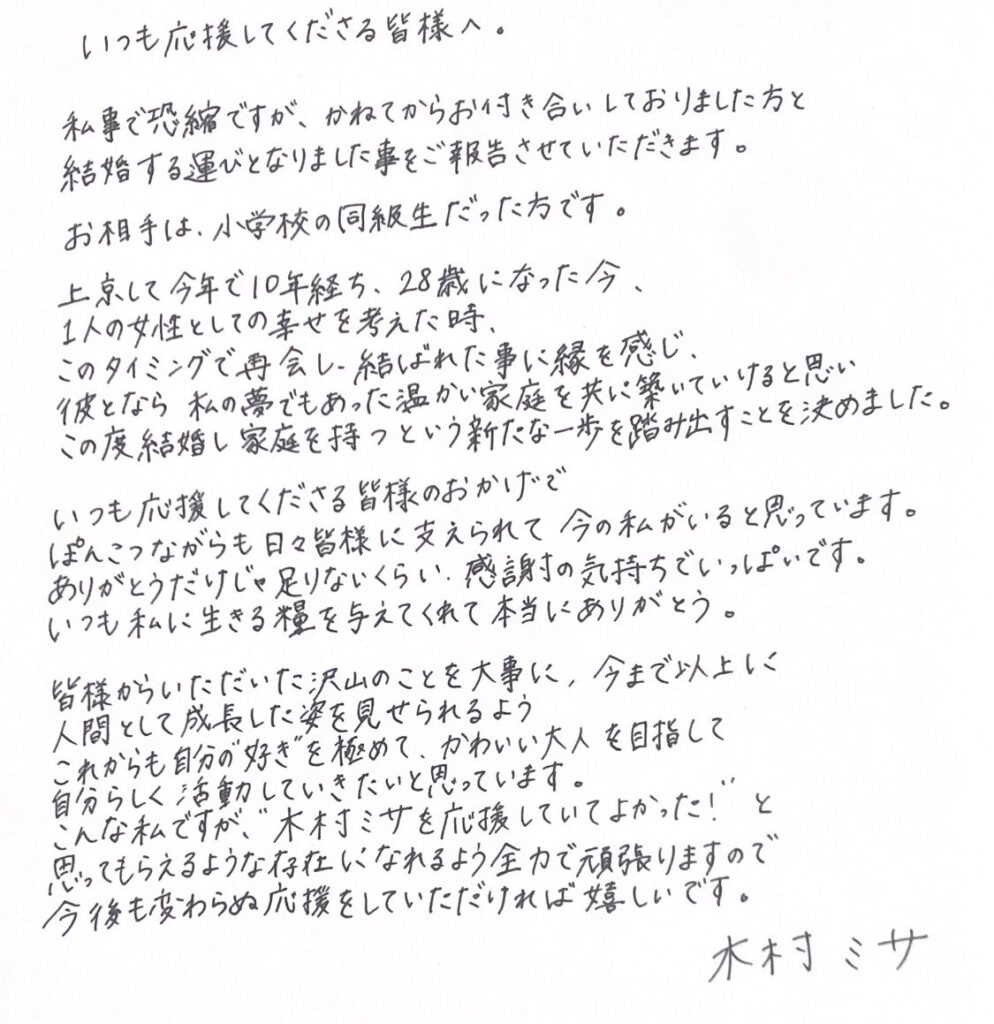 いつも応援してくださる皆様へ。
私事で恐縮ですが、かねてからお付き合いしておりました方と
結婚する運びとなりました事をご報告させていただきます。
お相手は、小学校の同級生だった方です。
上京して今年で10年経ち、28歳になった今、
1人の女性としての幸せを考えた時、
このタイミングで再会し、結ばれた事に縁を感じ、
彼となら 私の夢でもあった温かい家庭を共に築いていけると思い
この度結婚し 家庭を持つという新たな一歩を踏み出すことを決めました。
いつも応援してくださる皆様のおかげで
ぽんこつながらも日々皆様に支えられて 今の私がいると思っています。
ありがとうだけじゃ足りないくらい、感謝の気持ちでいっぱいです。
いつも私に生きる糧を与えてくれて本当にありがとう。
皆様からいただいた沢山のことを大事に、今まで以上に
人間として成長した姿を見せられるよう
これからも自分の"好き"を極めて、かわいい大人を目指して
自分らしく活動していきたいと思っています。
こんな私ですが、"木村ミサを応援していてよかった！"と
思ってもらえるような存在になれるよう全力で頑張りますので
今後も変わらぬ応援をしていただければ嬉しいです。
木村ミサ